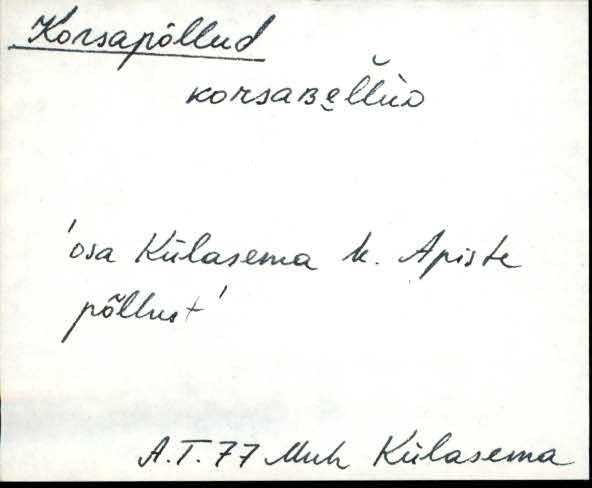 Korsapõllud
korsaʙe̮l̆lùᴅ
'osa Külasema k. Apiste
põllust'
A.T. 77 Muh Külasema